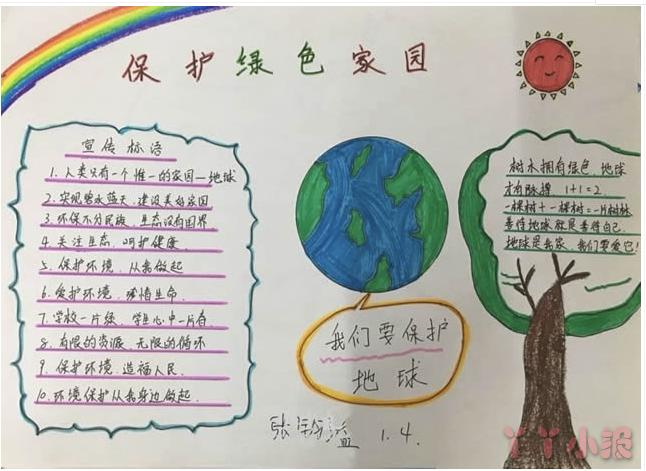 保护绿色家园
宣传标语
1.人类只有一个惟一的家园—地球
2.实现碧水蓝天,建设美好家园
3.环保不分民族,生态没有国界
4.关注生态,呵护健康
5.保护环境,从我做起
6.爱护环境,珍惜生命.
7.学校一片绿,学生心中一片春
8.有限的资源,无限的循环
9.保护环境,造福人民.
10.环境保护从我身边做起.
我们要保护
地球
树木拥有绿色,地球
才有脉搏 1+1=2.
一棵树+一棵树=一片树林
善待地球就是善待自己.
地球是我家,我们要爱它!
张 1.4.
丫丫小报